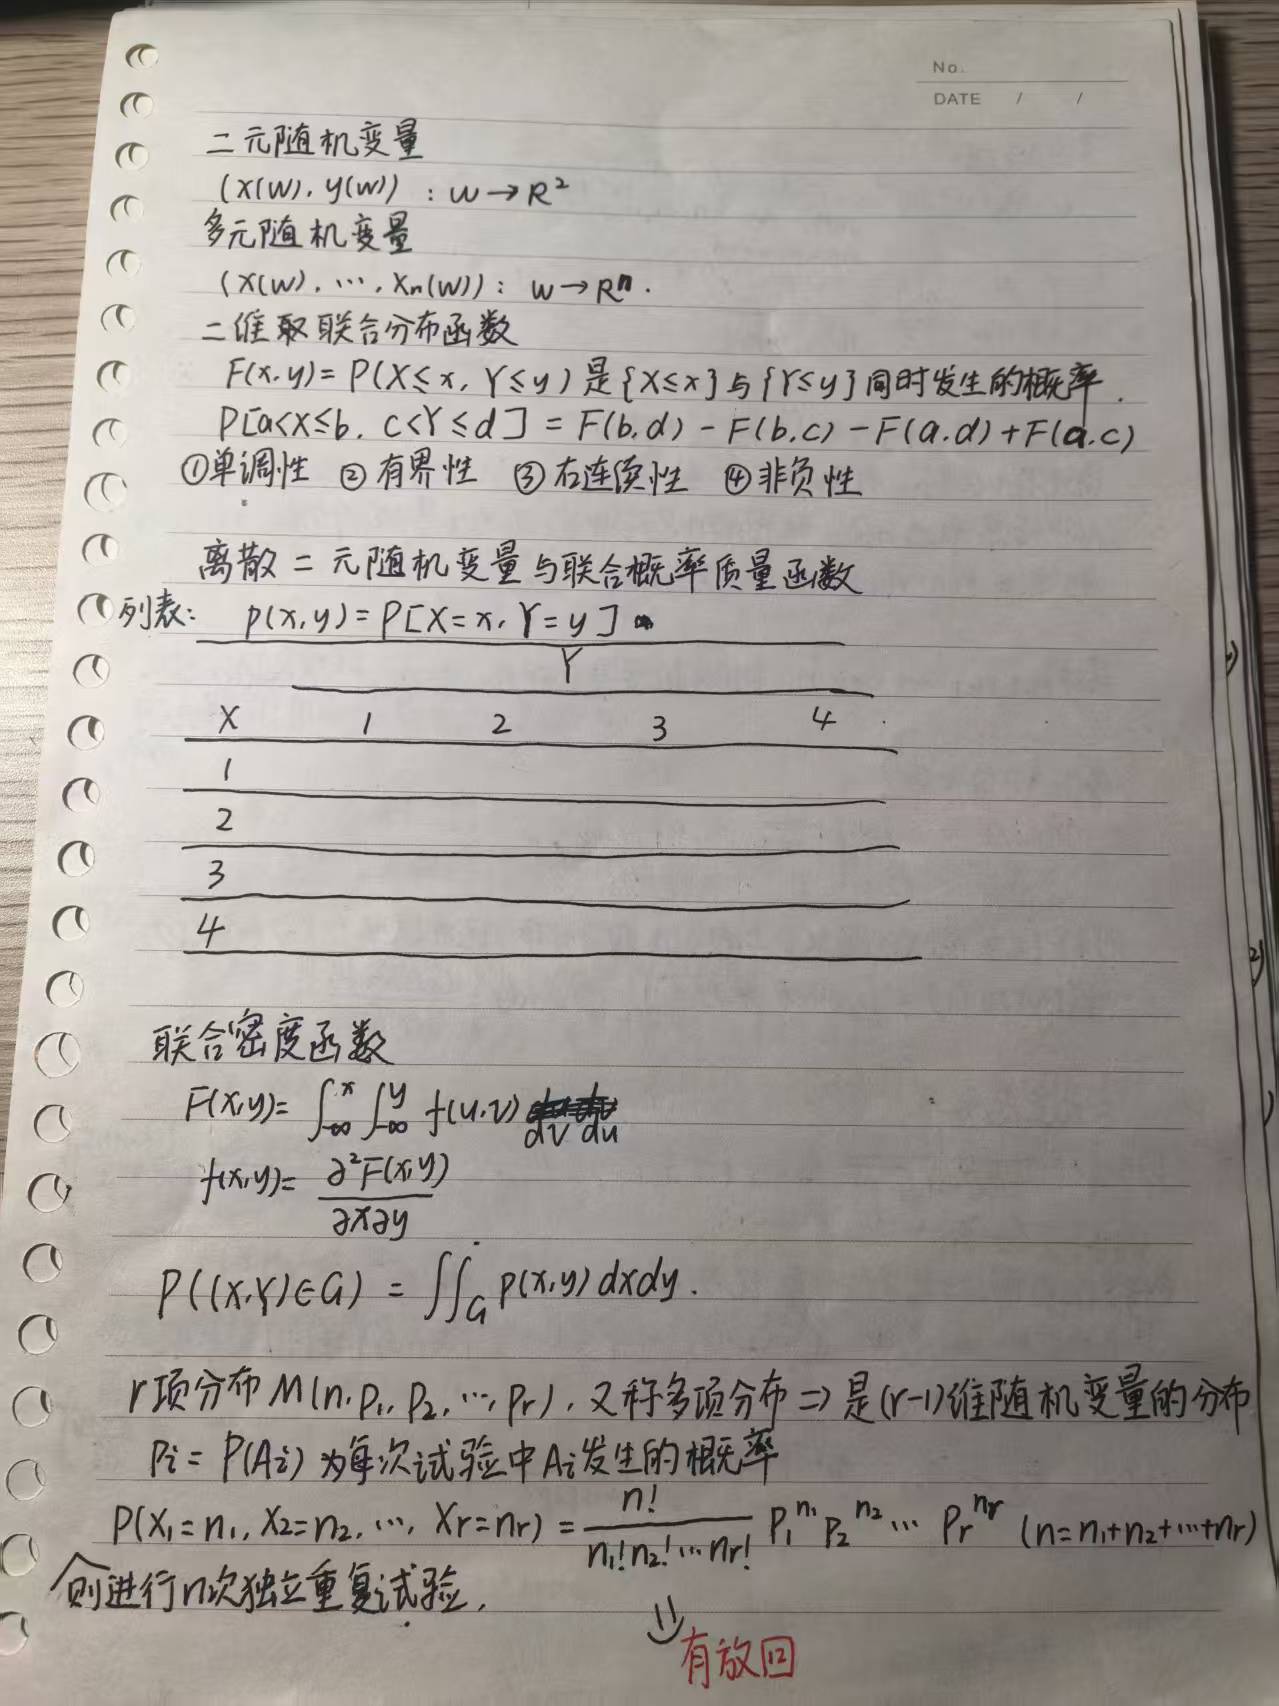 No.
DATE / /
二元随机变量
(X(w), y(w)) : w→R²
多元随机变量
(X(w), …, Xn(w)) : w→Rⁿ.
二维 联合分布函数
F(x,y)=P(X≤x, Y≤y)是{X≤x}与{Y≤y}同时发生的概率.
P[a<X≤b, c<Y≤d] = F(b,d) - F(b,c) - F(a,d) + F(a,c)
①单调性 ②有界性 ③右连续性 ④非负性
离散二元随机变量与联合概率质量函数
列表: p(x,y)=P[X=x, Y=y]
Y
X 1 2 3 4
1
2
3
4
联合密度函数
F(x,y)= ∫_{-∞}^{x} ∫_{-∞}^{y} f(u,v) dv du
f(x,y)= ∂²F(x,y) / ∂x∂y
P((X,Y)∈G) = ∬_G p(x,y) dxdy.
r项分布M(n,p₁,p₂,…,pr), 又称多项分布⇒是(r-1)维随机变量的分布
Pi = P(Ai) 为每次试验中Ai发生的概率
P(X₁=n₁, X₂=n₂, …, Xr=nr) = n! / n₁!n₂!…nr! P₁^{n₁} P₂^{n₂} … Pr^{nr} (n=n₁+n₂+…+nr)
则进行n次独立重复试验.
有放回